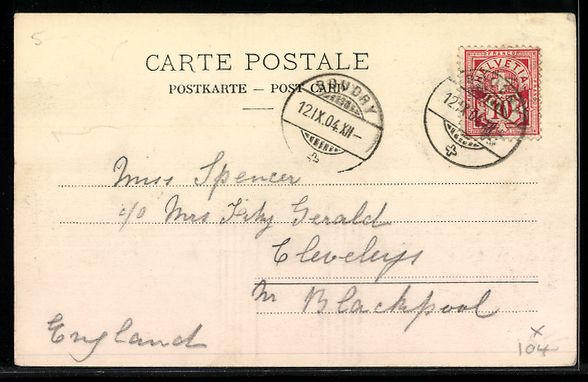 5
CARTE POSTALE
POSTKARTE — POST CARD
BOUDRY
12.IX.04.XII—
FRANCO
HELVETIA
10
BOUDRY
12.IX.04
Miss Spencer
c/o Mrs Fitz Gerald
Cleveleys
Nr Blackpool
England
x
104